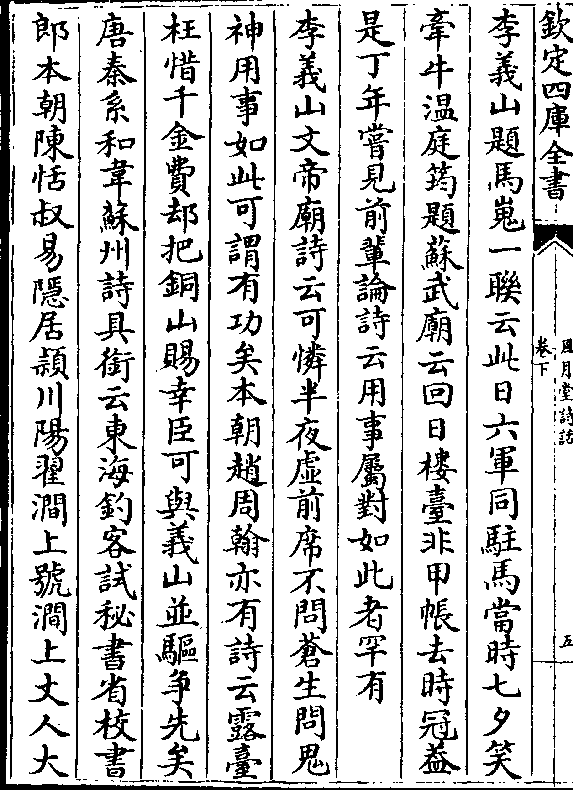 欽定四庫全書
風月堂詩話
卷下
五
李義山題馬嵬一聯云此日六軍同駐馬當時七夕笑
牽牛温庭筠題蘇武廟云回日樓臺非甲帳去時冠葢
是丁年嘗見前輩論詩云用事屬對如此者罕有
李義山文帝廟詩云可憐半夜虛前席不問蒼生問鬼
神用事如此可謂有功矣本朝趙周翰亦有詩云露臺
枉惜千金費却把銅山賜幸臣可與義山並驅爭先矣
唐秦系和韋蘇州詩具銜云東海釣客試秘書省校書
郎本朝陳恬叔易隱居潁川陽翟澗上號澗上丈人大